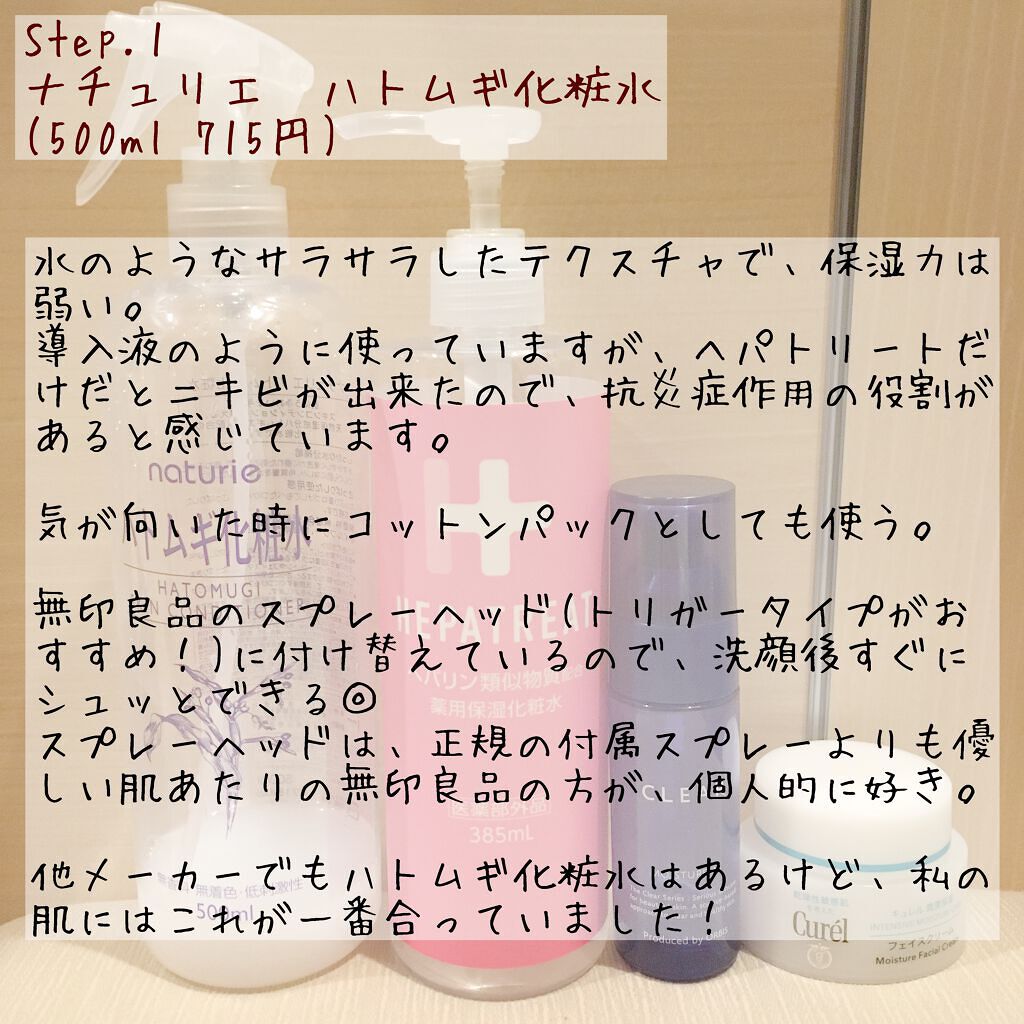 Step.1
ナチュリエ ハトムギ化粧水
(500ml 715円)
水のようなサラサラしたテクスチャで、保湿力は
弱い。
導入液のように使っていますが、ヘパトリートだ
けだとニキビが出来たので、抗炎症作用の役割が
あると感じています。
気が向いた時にコットンパックとしても使う。
無印良品のスプレーヘッド(トリガータイプがお
すすめ!)に付け替えているので、洗顔後すぐに
シュッとできる◎
スプレーヘッドは、正規の付属スプレーよりも優
しい肌あたりの無印良品の方が、個人的に好き。
他メーカーでもハトムギ化粧水はあるけど、私の
肌にはこれが一番合っていました!
naturie
トムギ化粧水
HATOMUGI
CONDITIONER
無着色・低刺激性
500ml
H
HEPATREAT
ヘパリン類似物質配合
薬用保湿化粧水
医薬部外品
385mL
CLEA
The Clear Series
Produced by ORBIS
Curél
フェイスクリーム
Moisture Facial Cream